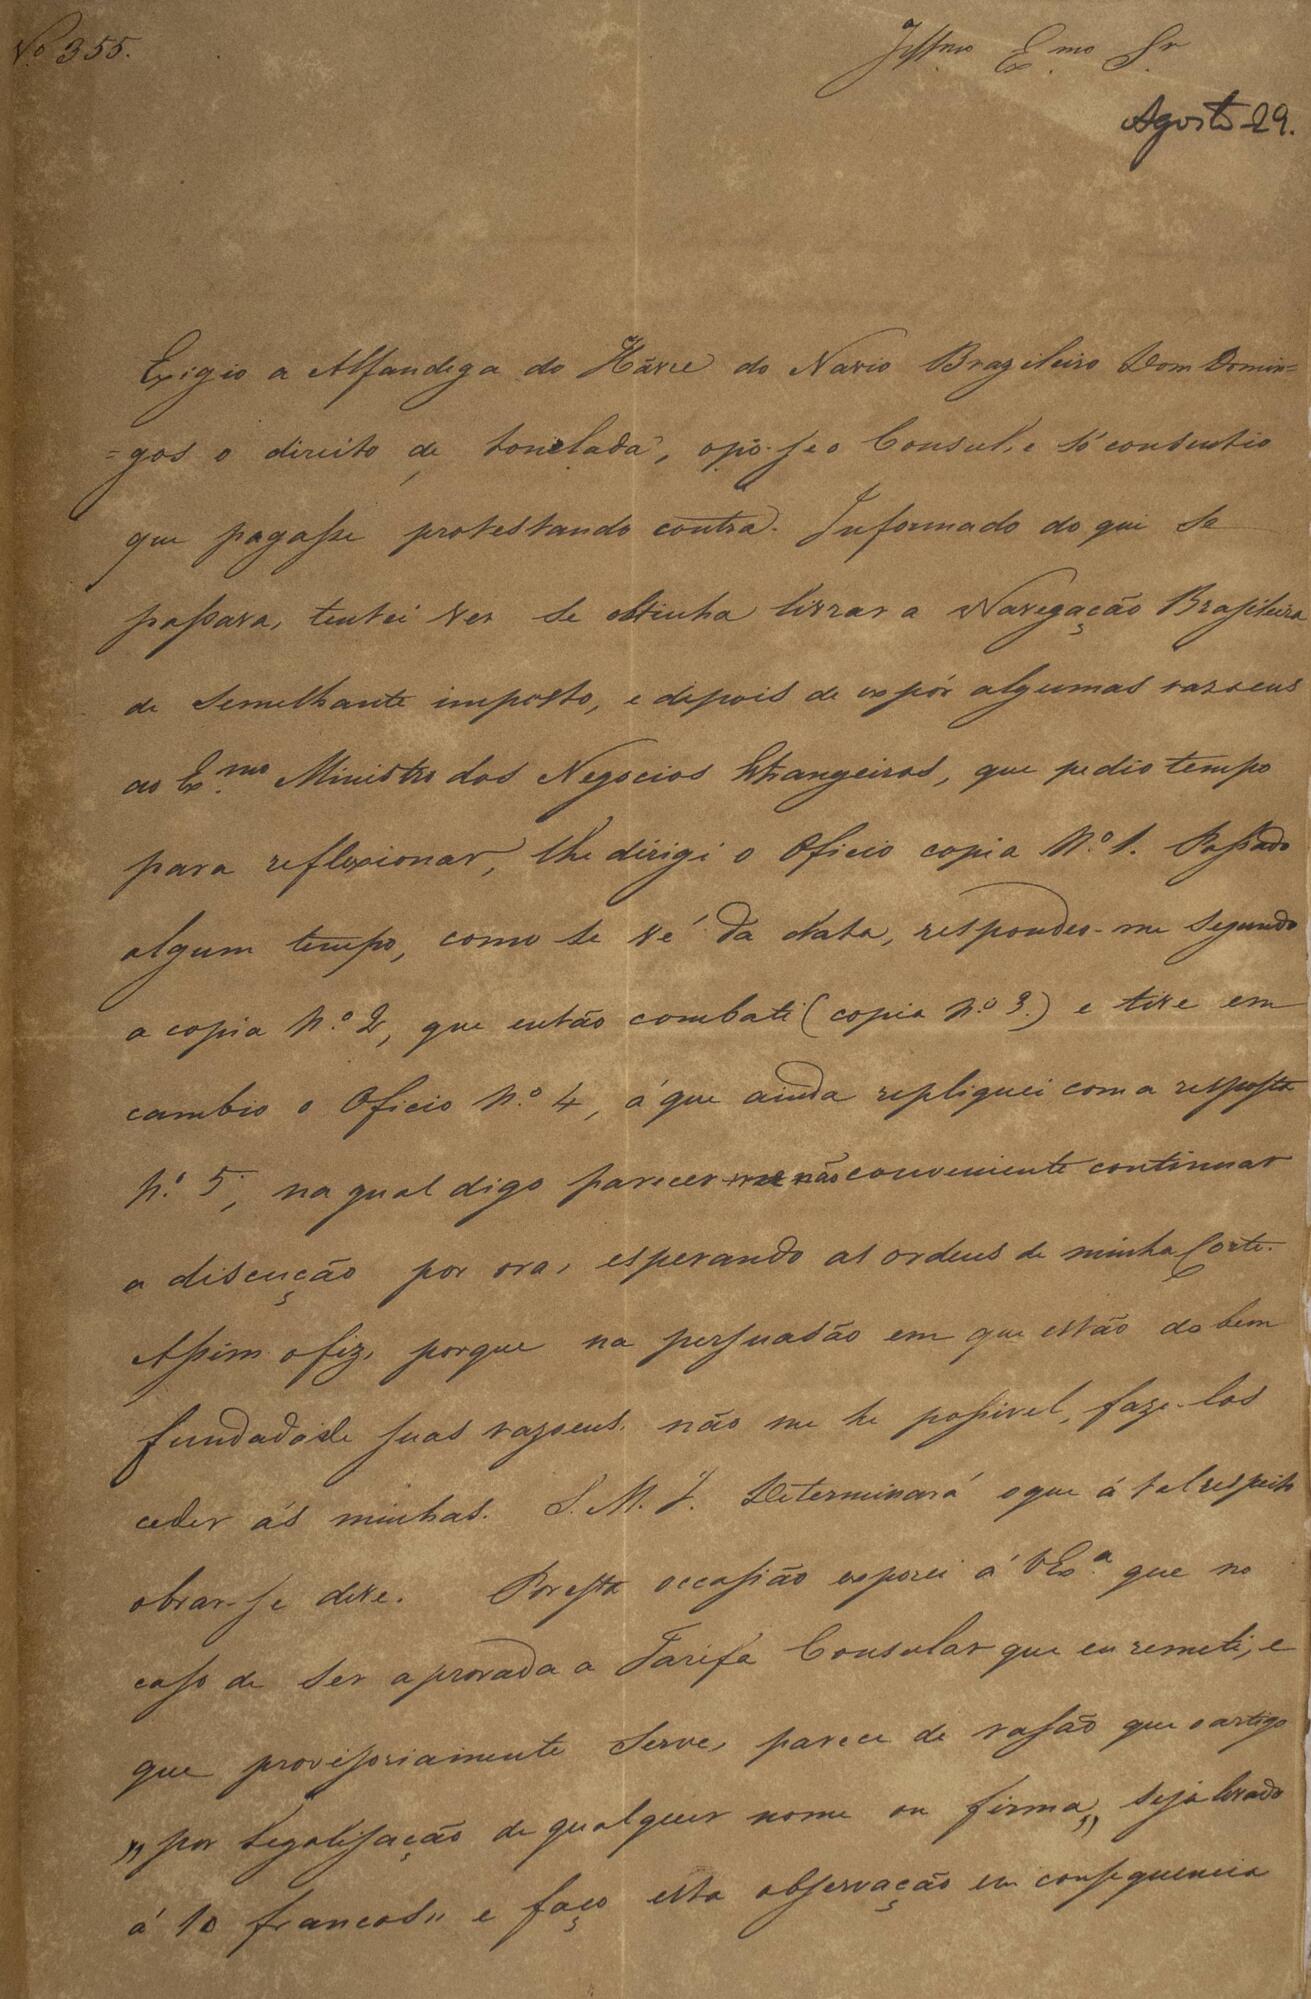 Nº 355.
Illmo Exmo Sr
Agosto 29.
Exigio a Alfandega do Hâvre do Navio Brazileiro Dom Domin=
=gos o direito de tonelada, opô-se o Consul, e só consentio
que pagasse protestando contra. Informado do que se
passara, tentei ver se obtinha livrar a Navegação Brasileira
de semelhante imposto, e depois de expôr algumas razoens
ao Exmo Ministro dos Negocios Estrangeiros, que pedio tempo
para reflexionar, lhe dirigi o Oficio copia N.º 1. Passado
algum tempo, como se vé da data, respondeo-me segundo
a copia N.º 2, que então combati (copia N.º 3.) e tive em
cambio o Oficio N.º 4, á que ainda repliquei com a resposta
N.º 5, na qual digo parecer-me não conveniente continuar
a discução por ora, esperando as ordens de minha Corte.
Assim o fiz, porque na persuasão em que estão do bem
fundado de suas razoens, não me he possivel, faze-los
ceder ás minhas. S. M. I. Determinará o que á tal respeito
obrar-se deve. Por esta occasião exporei á V Exª. que no
caso de ser aprovada a Tarifa Consular que eu remeti, e
que provisoriamente serve, parece de rasão que o artigo
„ por legalisação de qualquer nome ou firma „ seja levado
á 10 francos „ e faço esta observação em consequencia